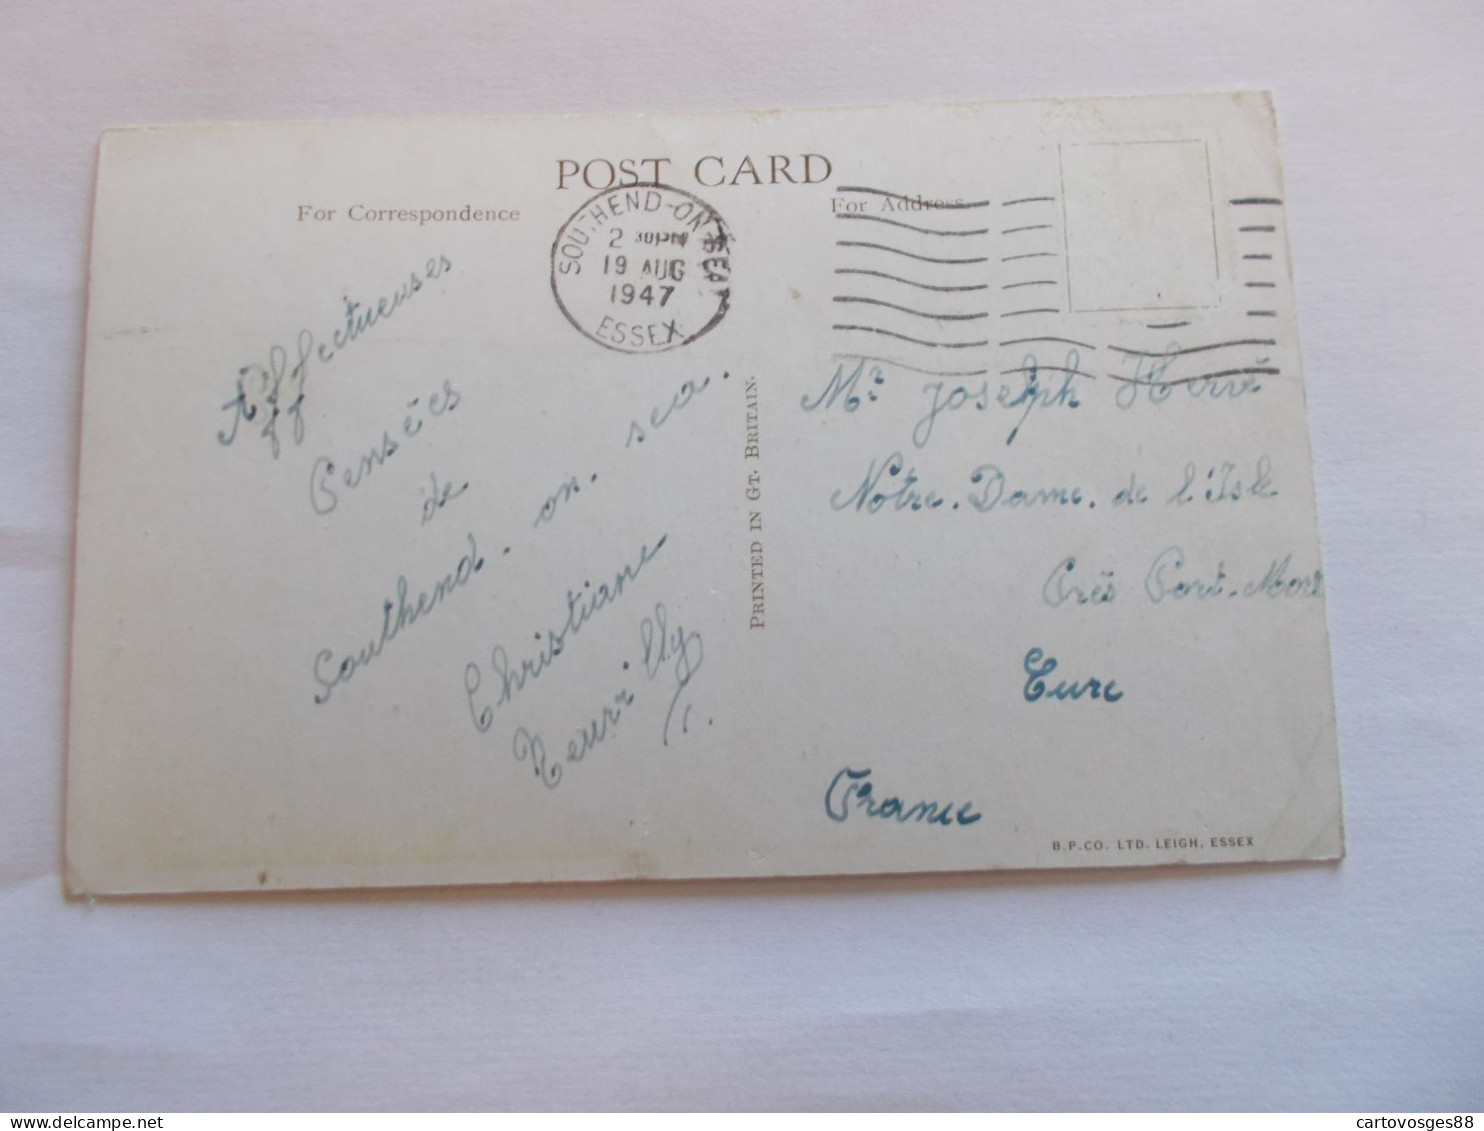 POST CARD
For Correspondence
For Address
SOUTHEND-ON-SEA
2 30 PM
19 AUG
1947
ESSEX
Affectueuses
Pensées
de
Southend. on. sea.
Christiane
PRINTED IN GT. BRITAIN.
Mr Joseph Hervé
Notre. Dame. de l'Isle
Près Port-Mort
Eure
France
B.P.CO. LTD. LEIGH, ESSEX
cartovosges88